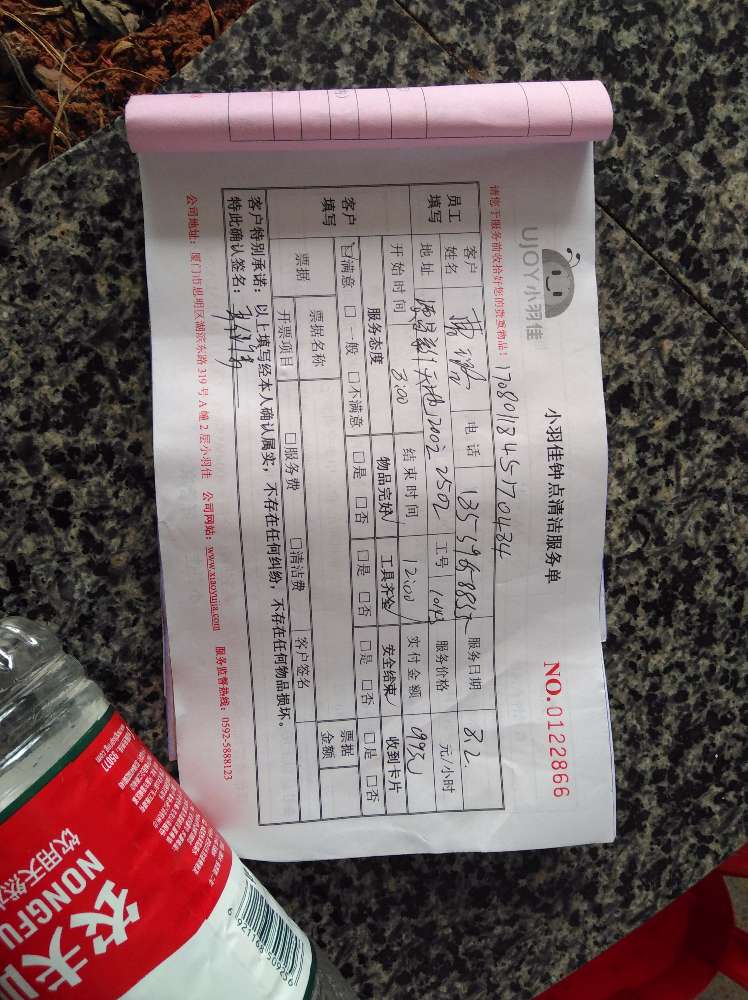 UJOY小羽佳
小羽佳钟点清洁服务单
NO.0122866
请您于服务前收拾好您的贵重物品:
员工填写
客户姓名
电话
服务日期 8.2.
地址
2002 2502
工号
服务价格
元/小时
开始时间 8:00
结束时间 12:00
实付金额
客户填写
服务态度 物品完好 工具齐全 安全结束 收到卡片
☑满意 □一般 □不满意 □是 □否 □是 □否 □是 □否 □是 □否
票据
票据名称
票据金额
开票项目 □服务费 □清洁费 客户签名
客户特别承诺:以上填写经本人确认属实,不存在任何纠纷,不存在任何物品损坏。
特此确认签名:
公司地址:厦门市思明区湖滨东路319号A幢2层小羽佳 公司网站:www.xiaoyujia.com 服务监督热线:0592-5888123
农夫山
NONGFU
饮用天然水